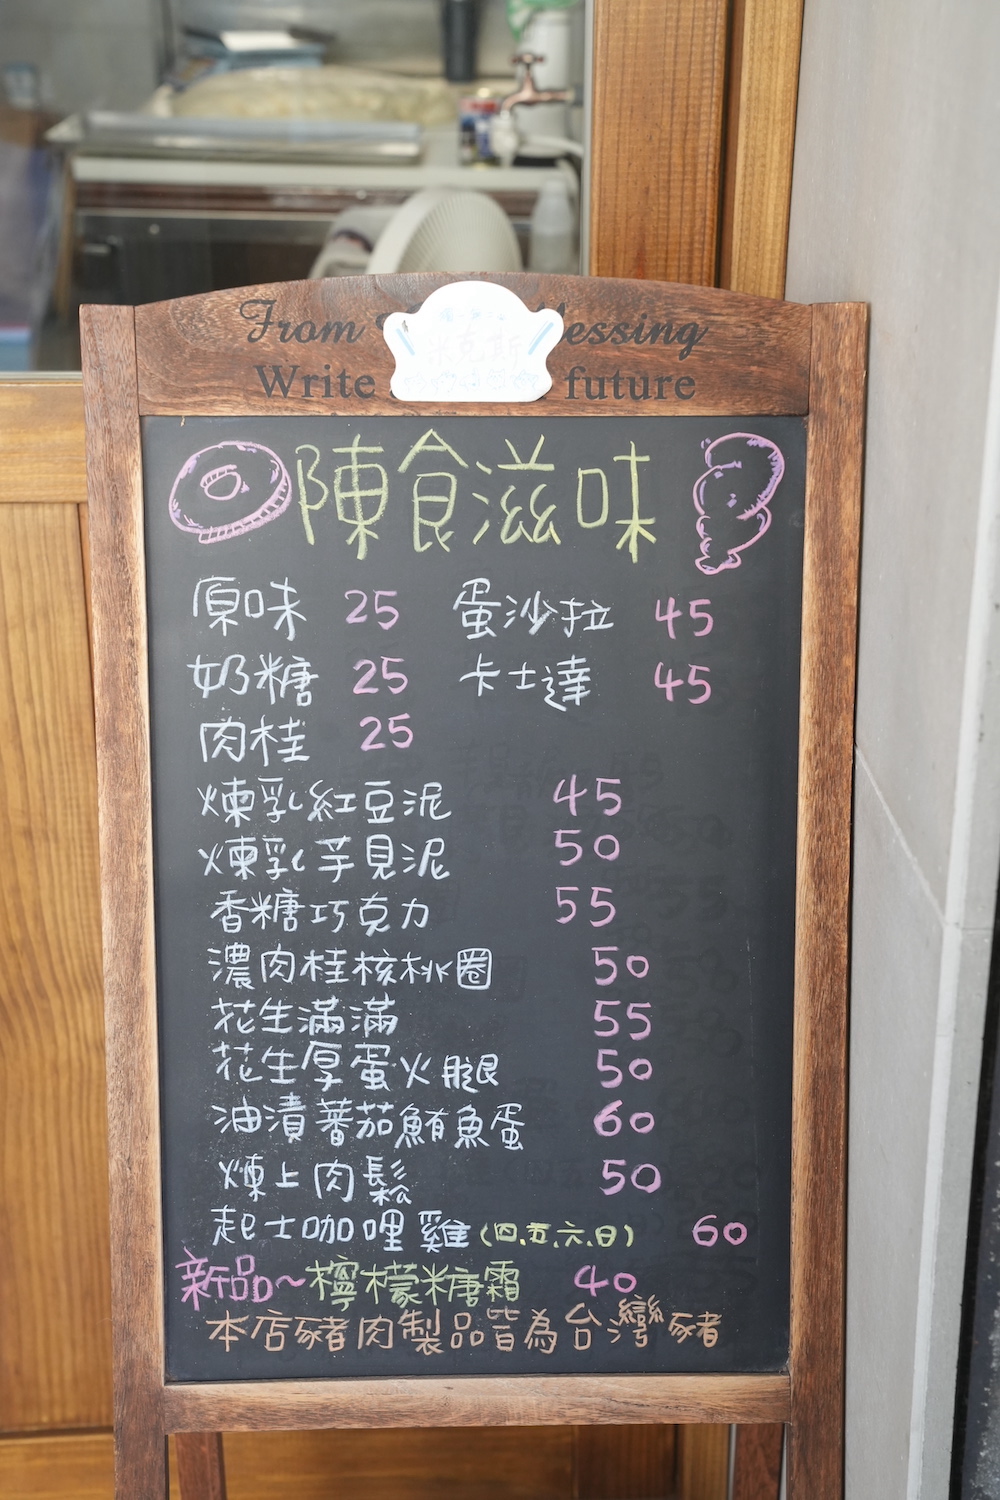 From lessing
Write future
米克斯
陳食滋味
原味 25 蛋沙拉 45
奶糖 25 卡士達 45
肉桂 25
煉乳紅豆泥 45
煉乳芋見泥 50
香糖巧克力 55
濃肉桂核桃圈 50
花生滿滿 55
花生厚蛋火腿 50
油漬蕃茄鮪魚蛋 60
煉上肉鬆 50
起士咖哩雞(四.五.六.日) 60
新品~檸檬糖霜 40
本店豬肉製品皆為台灣豬